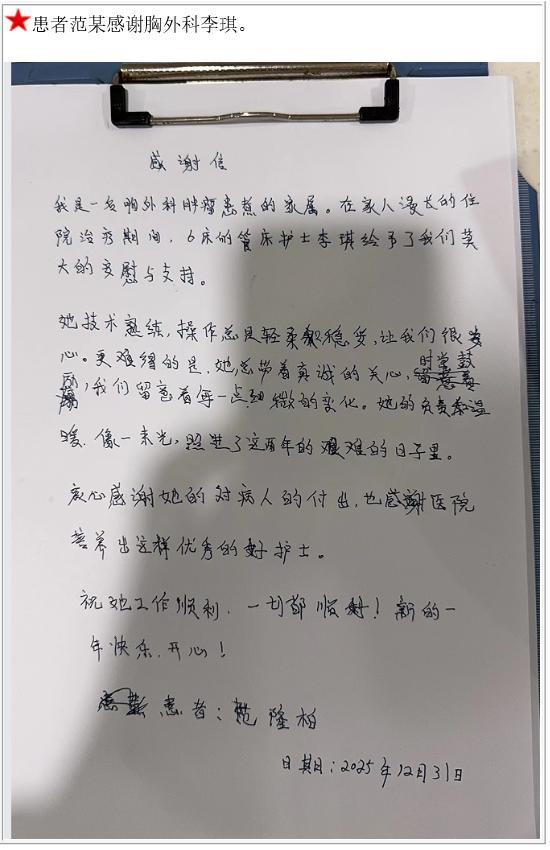 患者范某感谢胸外科李琪。
感谢信
我是一名胸外科肿瘤患者的家属。在家人漫长的住
院治疗期间，6床的管床护士李琪给予了我们莫
大的安慰与支持。
她技术熟练，操作总是轻柔稳妥，让我们很安
心。更难得的是，她总带着真诚的关心，时常鼓
励，我们留意着每一点细微的变化。她的负责和温
暖，像一束光，照进了这两年的艰难的日子里。
衷心感谢她的对病人的付出，也感谢医院
培养出这样优秀的好护士。
祝她工作顺利，一切都顺利！新的一
年快乐，开心！
患者：范隆柏
日期：2025年12月31日